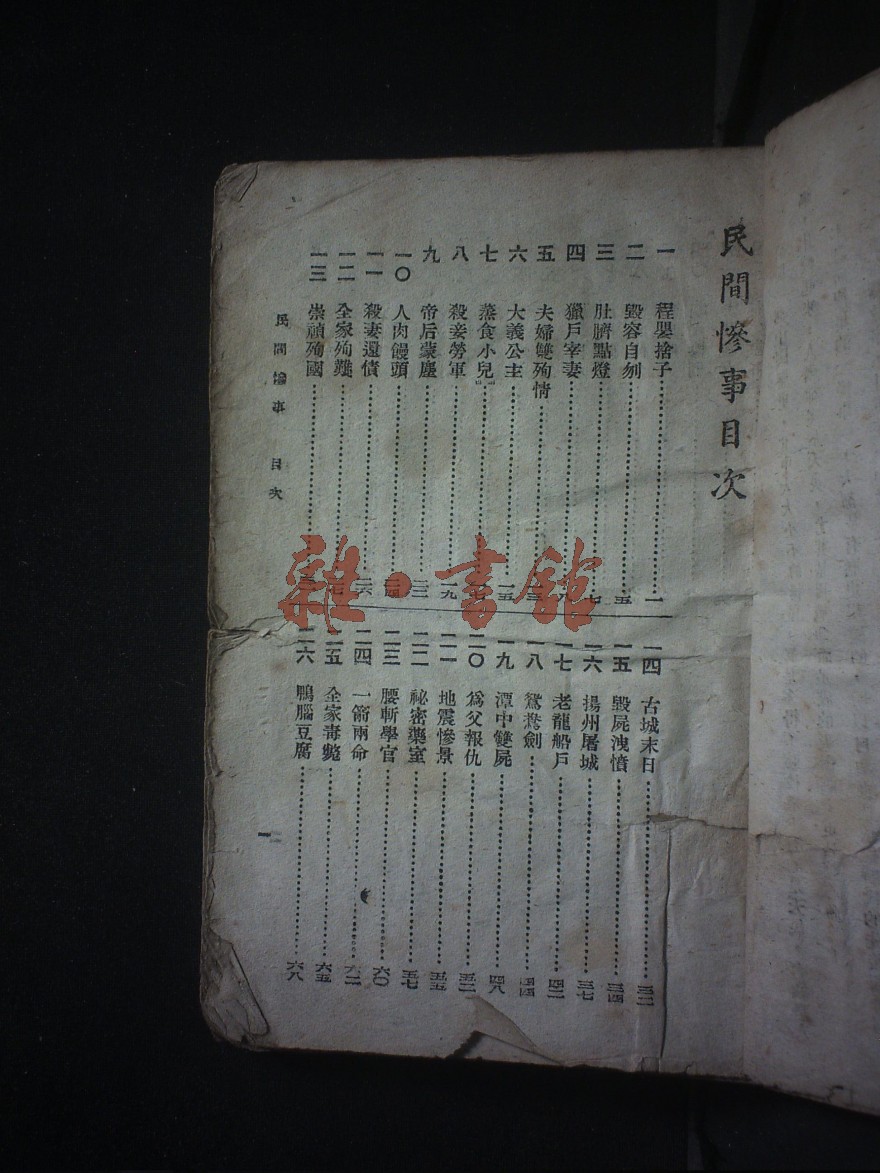 民間慘事目次
一 程嬰捨子 一
二 毀容自刎 五
三 肚臍點燈 七
四 獵戶宰妻 八
五 夫婦雙殉情
六 大義公主 一五
七 蒸食小兒
八 殺妾勞軍 一九
九 帝后蒙塵 二二
一〇 人肉饅頭 二四
一一 殺妻還債 二六
一二 全家殉難
一三 崇禎殉國
一四 古城末日 三二
一五 毀屍洩憤 三四
一六 揚州屠城 三七
一七 老龍船戶 四二
一八 鴛鴦劍 四四
一九 潭中雙屍 四八
二〇 爲父報仇 五二
二一 地震慘景 五五
二二 祕密藥室 五七
二三 腰斬學官 六〇
二四 一箭兩命 六二
二五 全家毒斃 六五
二六 鴨腦豆腐 六八
民間慘事 目次
一
雜·書館